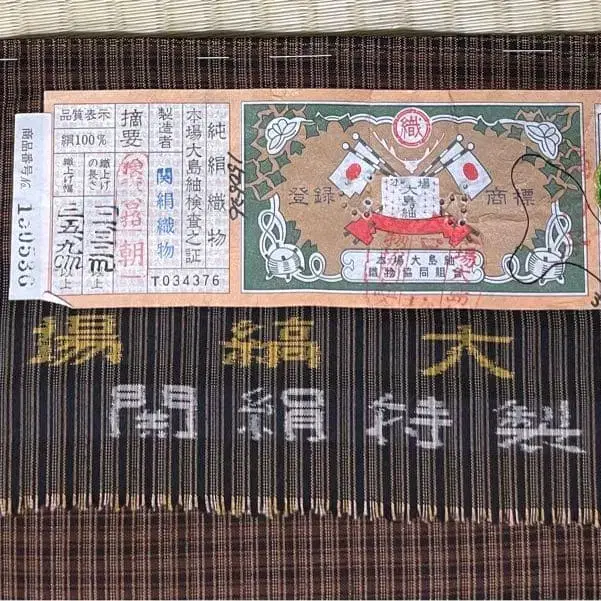 純絹織物
本場大島紬検査之証
製造者 関絹織物
摘要
品質表示
絹100%
織上げの長さ
以上
織上げ幅
以上
T034376
商品番号№
織
登録 商標
本場大島紬
本場大島紬
織物協同組合
場 縞 大
関絹特製